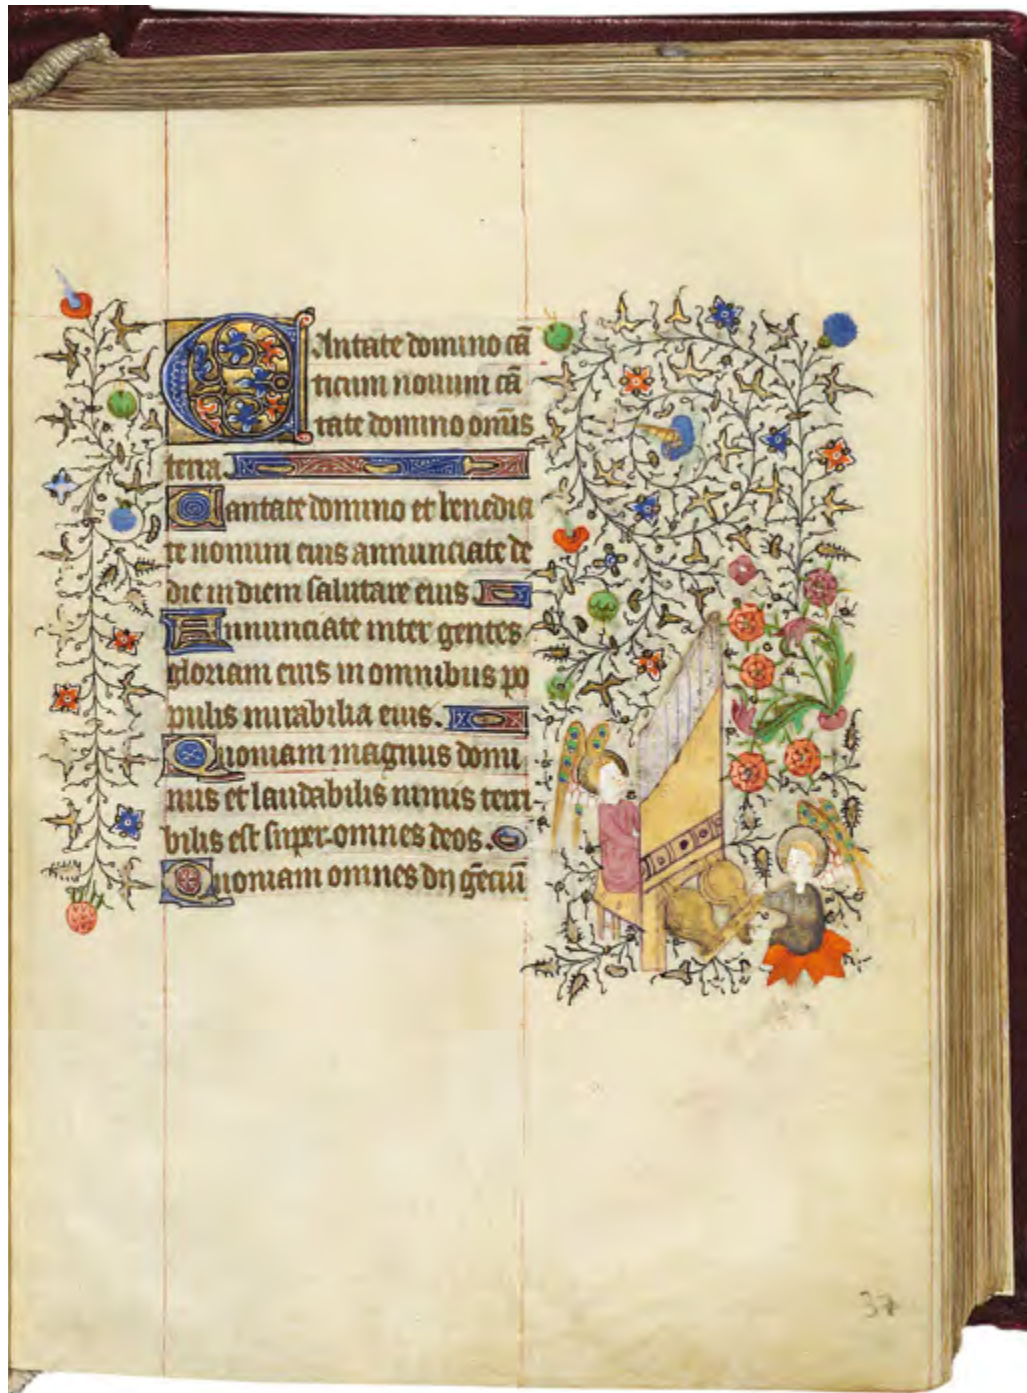 CAntate domino cā
ticum nouum cā
tate domino om̄is
terra.
Cantate domino et benedici
te nomini eius annunciate de
die in diem salutare eius.
Annunciate inter gentes
gloriam eius in omnibus po
pulis mirabilia eius.
Quoniam magnus domi
nus et laudabilis nimis terri
bilis est super omnes deos.
Quoniam omnes dij gēciū
37